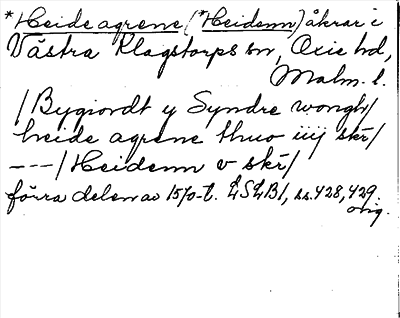 *Heide agrene (*Heidenn) åkrar i
Västra Klagstorps sn, Oxie hd,
Malm. l.
/Bygiordt y Syndre wongh/
heide agrene thuo iiij skr/
---/Heidenn v skr/
förra delen av 1570-t. LSLB1, ss. 428, 429.
orig.